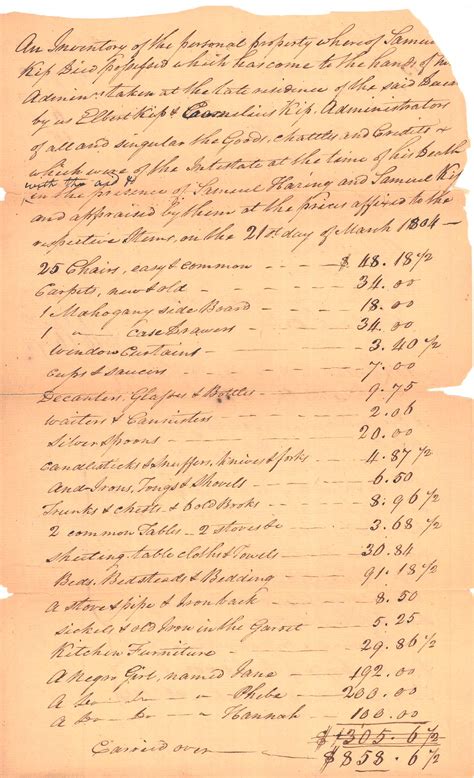 An Inventory of the personal property whereof Samuel
Kip Died possessed which has come to the hands of the
Admin.rs taken at the late residence of the said
by us Elbert Kip & Cornelius Kip, Administrators
of all and singular the Goods, chattles and Credits &
which were of the Intestate at the time of his Death
with the aid &
in the presence of Samuel Haring and Samuel Kip
and appraised by them at the prices affixed to the
respective Items, on the 21st day of March 1804 —
25 Chairs, easy & common — $ 48.18 1/2
Carpets, new & old — 34.00
1 Mahogany side Board — 18.00
1 " Case Drawers — 34.00
Window Curtains — 3.40 1/2
Cups & saucers — 7.00
Decanters, Glasses & Bottles — 9.75
Waiters & Cannisters — 2.06
Silver Spoons — 20.00
Candlesticks & Snuffers, Knives & forks — 4.87 1/2
And-Irons, Tongs & Shovels — 6.50
Trunks & chests & 6 old Books — 8.96 1/2
2 common Tables — 2 stoves &c — 3.68 1/2
Sheeting, table cloths & Towels — 30.84
Beds, Bedsteads & Bedding — 91.18 1/2
A stove & pipe & Iron back — 8.50
Sickels & old Iron in the Garret — 5.25
Kitchen Furniture — 29.86 1/2
A Negro Girl, named Jane — 192.00
A Do Do — Phebe — 200.00
A Do Do — Hannah — 100.00
$ 1305.6 1/2
Carried over — $ 858.6 1/2